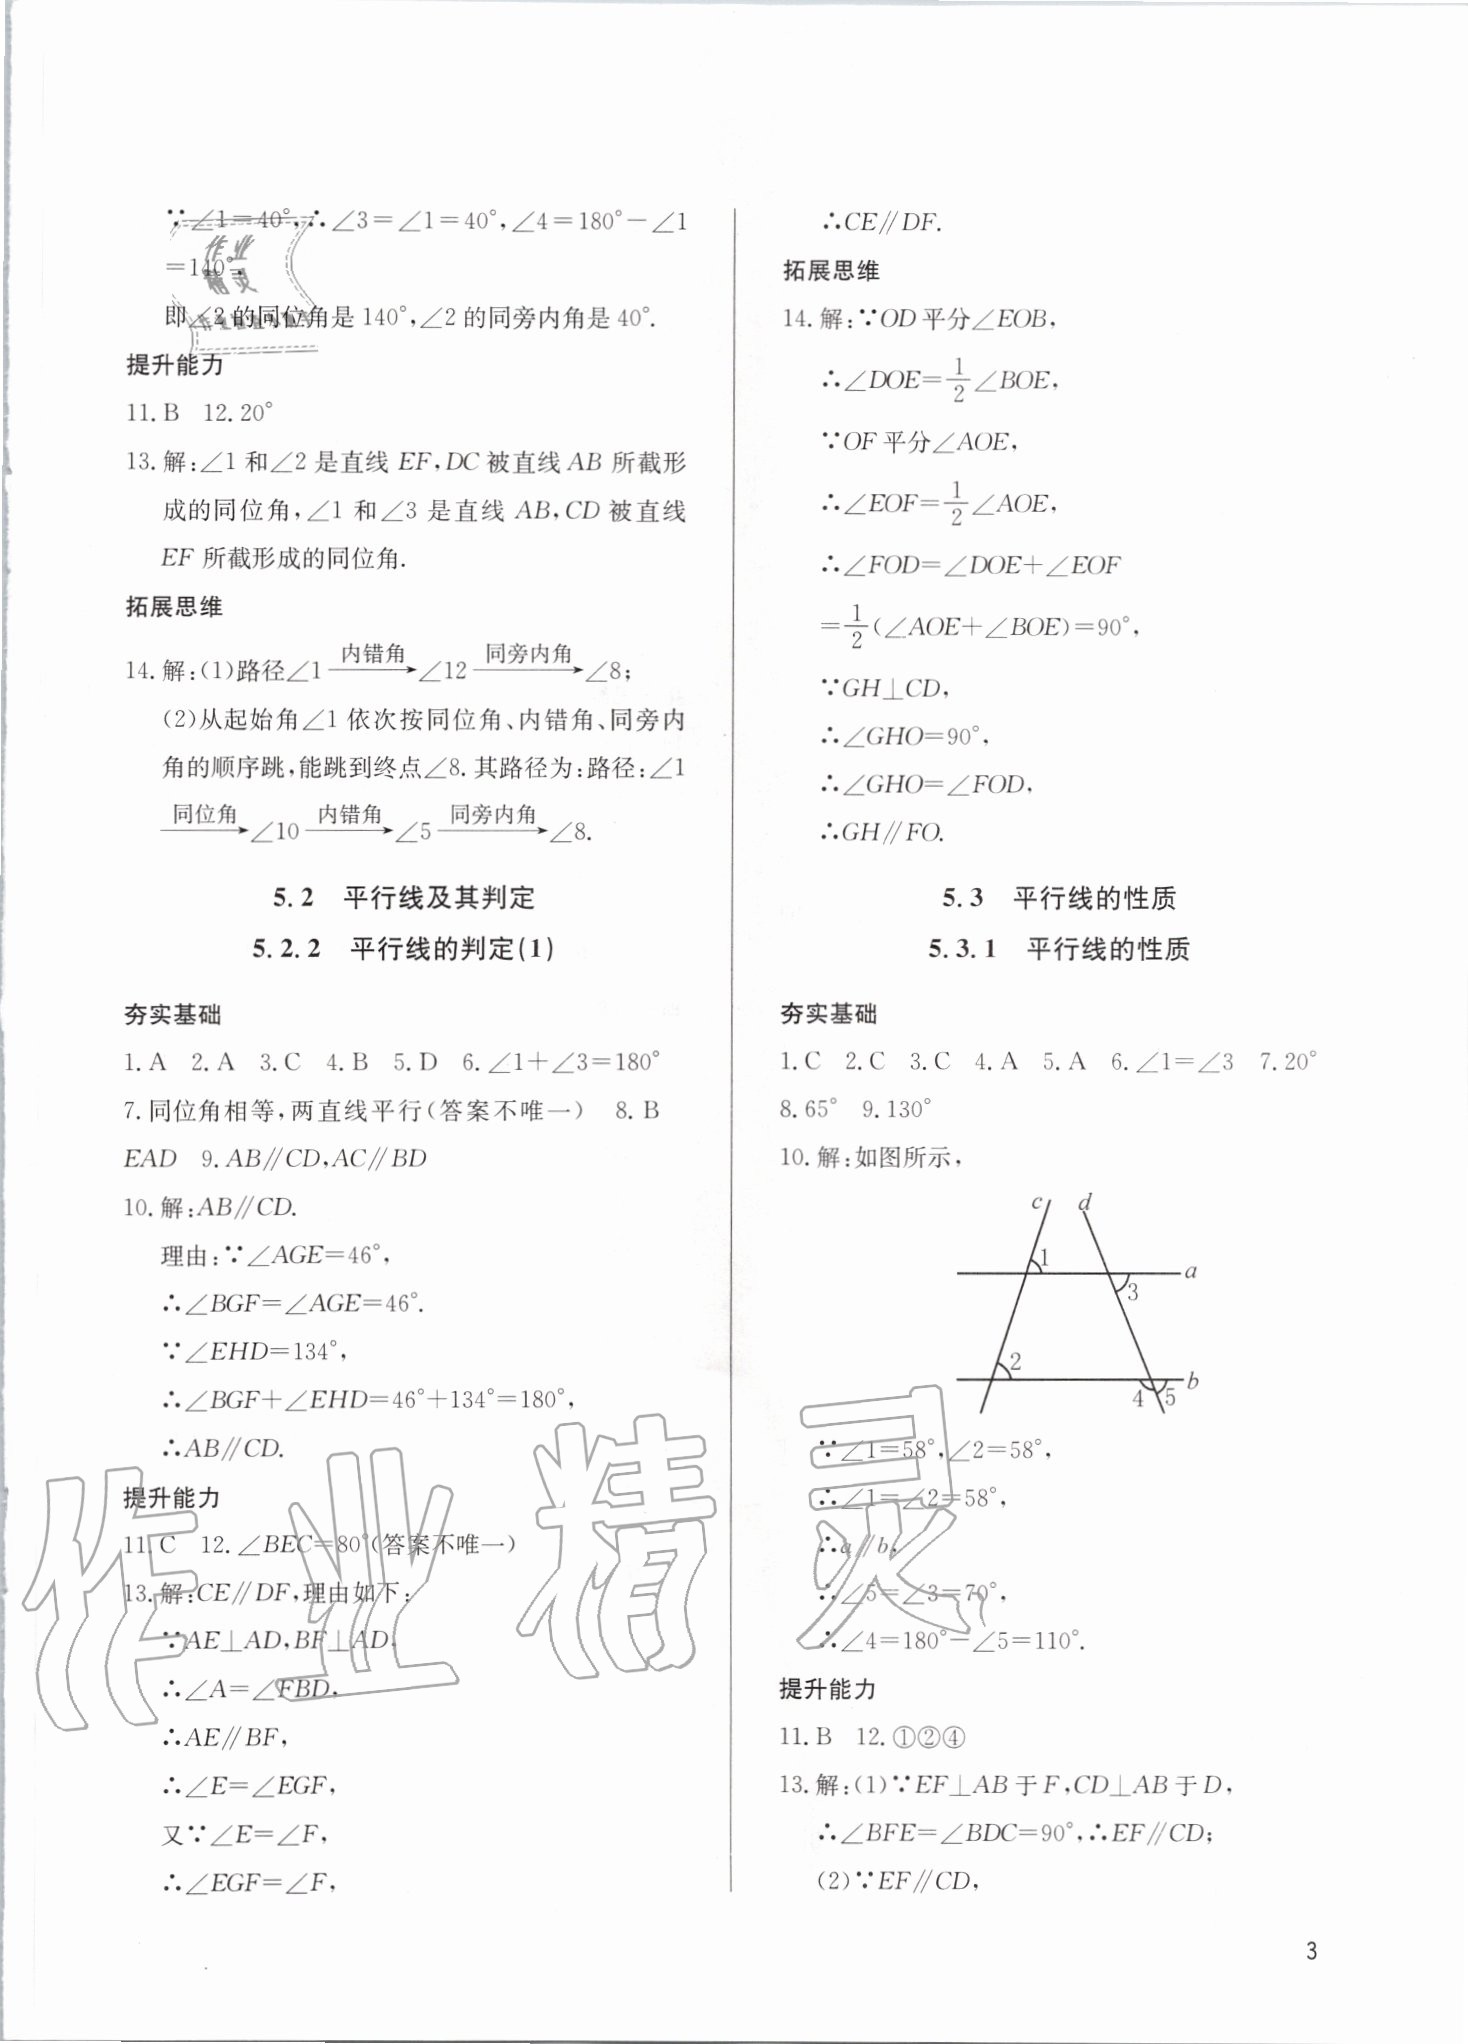 ∵∠1=40°,∴∠3=∠1=40°,∠4=180°-∠1
=140°.
即∠2的同位角是140°,∠2的同旁内角是40°.
提升能力
11.B 12.20°
13.解:∠1和∠2是直线EF,DC被直线AB所截形
成的同位角,∠1和∠3是直线AB,CD被直线
EF所截形成的同位角.
拓展思维
14.解:(1)路径∠1 —内错角→ ∠12 —同旁内角→ ∠8;
(2)从起始角∠1依次按同位角、内错角、同旁内
角的顺序跳,能跳到终点∠8.其路径为:路径:∠1
—同位角→ ∠10 —内错角→ ∠5 —同旁内角→ ∠8.
5.2 平行线及其判定
5.2.2 平行线的判定(1)
夯实基础
1.A 2.A 3.C 4.B 5.D 6.∠1+∠3=180°
7.同位角相等,两直线平行(答案不唯一) 8.B
EAD 9.AB∥CD,AC∥BD
10.解:AB∥CD.
理由:∵∠AGE=46°,
∴∠BGF=∠AGE=46°.
∵∠EHD=134°,
∴∠BGF+∠EHD=46°+134°=180°,
∴AB∥CD.
提升能力
11.C 12.∠BEC=80°(答案不唯一)
13.解:CE∥DF,理由如下:
∵AE⊥AD,BF⊥AD,
∴∠A=∠FBD,
∴AE∥BF,
∴∠E=∠EGF,
又∵∠E=∠F,
∴∠EGF=∠F,
∴CE∥DF.
拓展思维
14.解:∵OD平分∠EOB,
∴∠DOE=1/2∠BOE,
∵OF平分∠AOE,
∴∠EOF=1/2∠AOE,
∴∠FOD=∠DOE+∠EOF
=1/2(∠AOE+∠BOE)=90°,
∵GH⊥CD,
∴∠GHO=90°,
∴∠GHO=∠FOD,
∴GH∥FO.
5.3 平行线的性质
5.3.1 平行线的性质
夯实基础
1.C 2.C 3.C 4.A 5.A 6.∠1=∠3 7.20°
8.65° 9.130°
10.解:如图所示,
c d
1
a
3
2
b
4 5
∵∠1=58°,∠2=58°,
∴∠1=∠2=58°,
∴a∥b,
∴∠5=∠3=70°,
∴∠4=180°-∠5=110°.
提升能力
11.B 12.①②④
13.解:(1)∵EF⊥AB于F,CD⊥AB于D,
∴∠BFE=∠BDC=90°,∴EF∥CD;
(2)∵EF∥CD,
3
作业
精灵
作业精灵